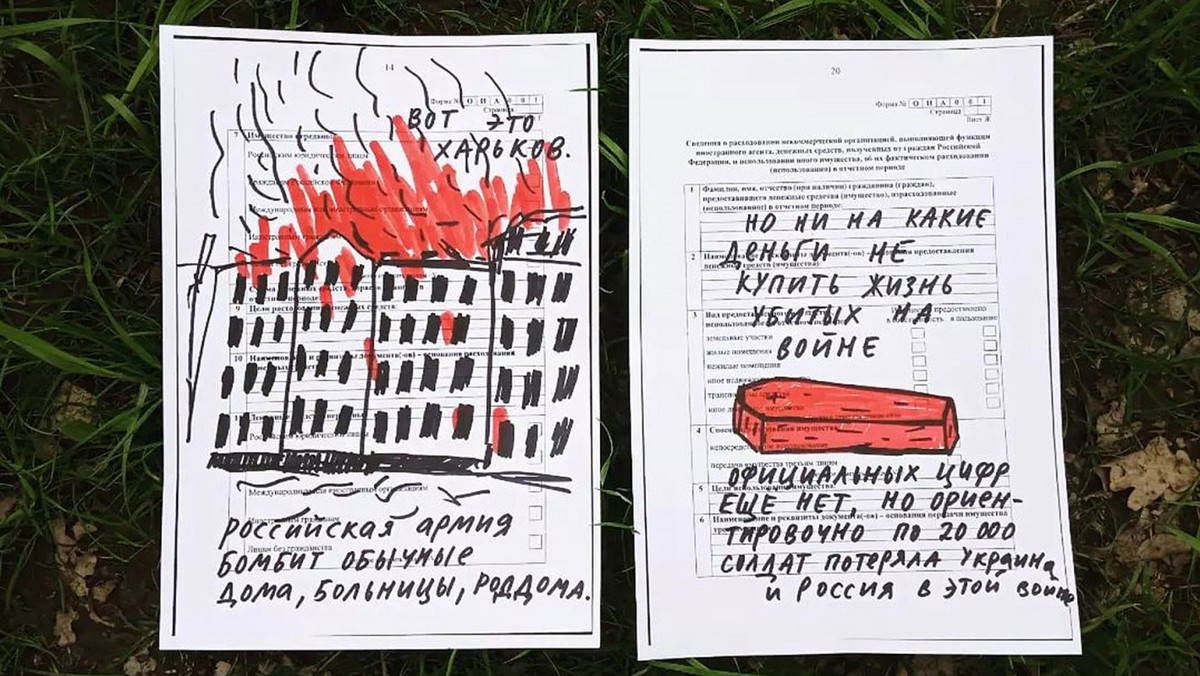 14
Форма № О И А 0 0 1
Страница
ВОТ ЭТО
ХАРЬКОВ.
7 Имущество передано:
Российским юридическим лицам
Гражданам Российской Федерации
Международным или иностранным организациям
Иностранным
9 Цели расходования денежных средств:
10 Наименование и реквизиты документа(-ов) – основания расходования
11
Российским юридическим лицам
Международным или иностранным организациям
Иностранным гражданам
Лицам без гражданства
РОССИЙСКАЯ АРМИЯ
БОМБИТ ОБЫЧНЫЕ
ДОМА, БОЛЬНИЦЫ, РОДДОМА.
20
Форма № О И А 0 0 1
Страница
Лист Ж
Сведения о расходовании некоммерческой организацией, выполняющей функции
иностранного агента, денежных средств, полученных от граждан Российской
Федерации, и использовании иного имущества, об их фактическом расходовании
(использовании) в отчетном периоде
1 Фамилия, имя, отчество (при наличии) гражданина (граждан),
предоставившего денежные средства (имущество), израсходованные
(использованное) в отчетном периоде:
НО НИ НА КАКИЕ
ДЕНЬГИ НЕ
2 Наименование и реквизиты документа(-ов) – основания предоставления
денежных средств (имущества)
КУПИТЬ ЖИЗНЬ
УБИТЫХ НА
ВОЙНЕ
3 Вид предоставленного
предоставлено
в собственность в пользование
земельные участки
жилые помещения
нежилые помещения
иное
4 имущества
непосредственное использование
передача имущества третьим лицам
ОФИЦИАЛЬНЫХ ЦИФР
5 Цели использования имущества:
ЕЩЕ НЕТ, НО ОРИЕН-
6 Наименование и реквизиты документа(-ов) – основания передачи имущества
ТИРОВОЧНО ПО 20 000
СОЛДАТ ПОТЕРЯЛА УКРАИНА
И РОССИЯ В ЭТОЙ ВОЙНЕ